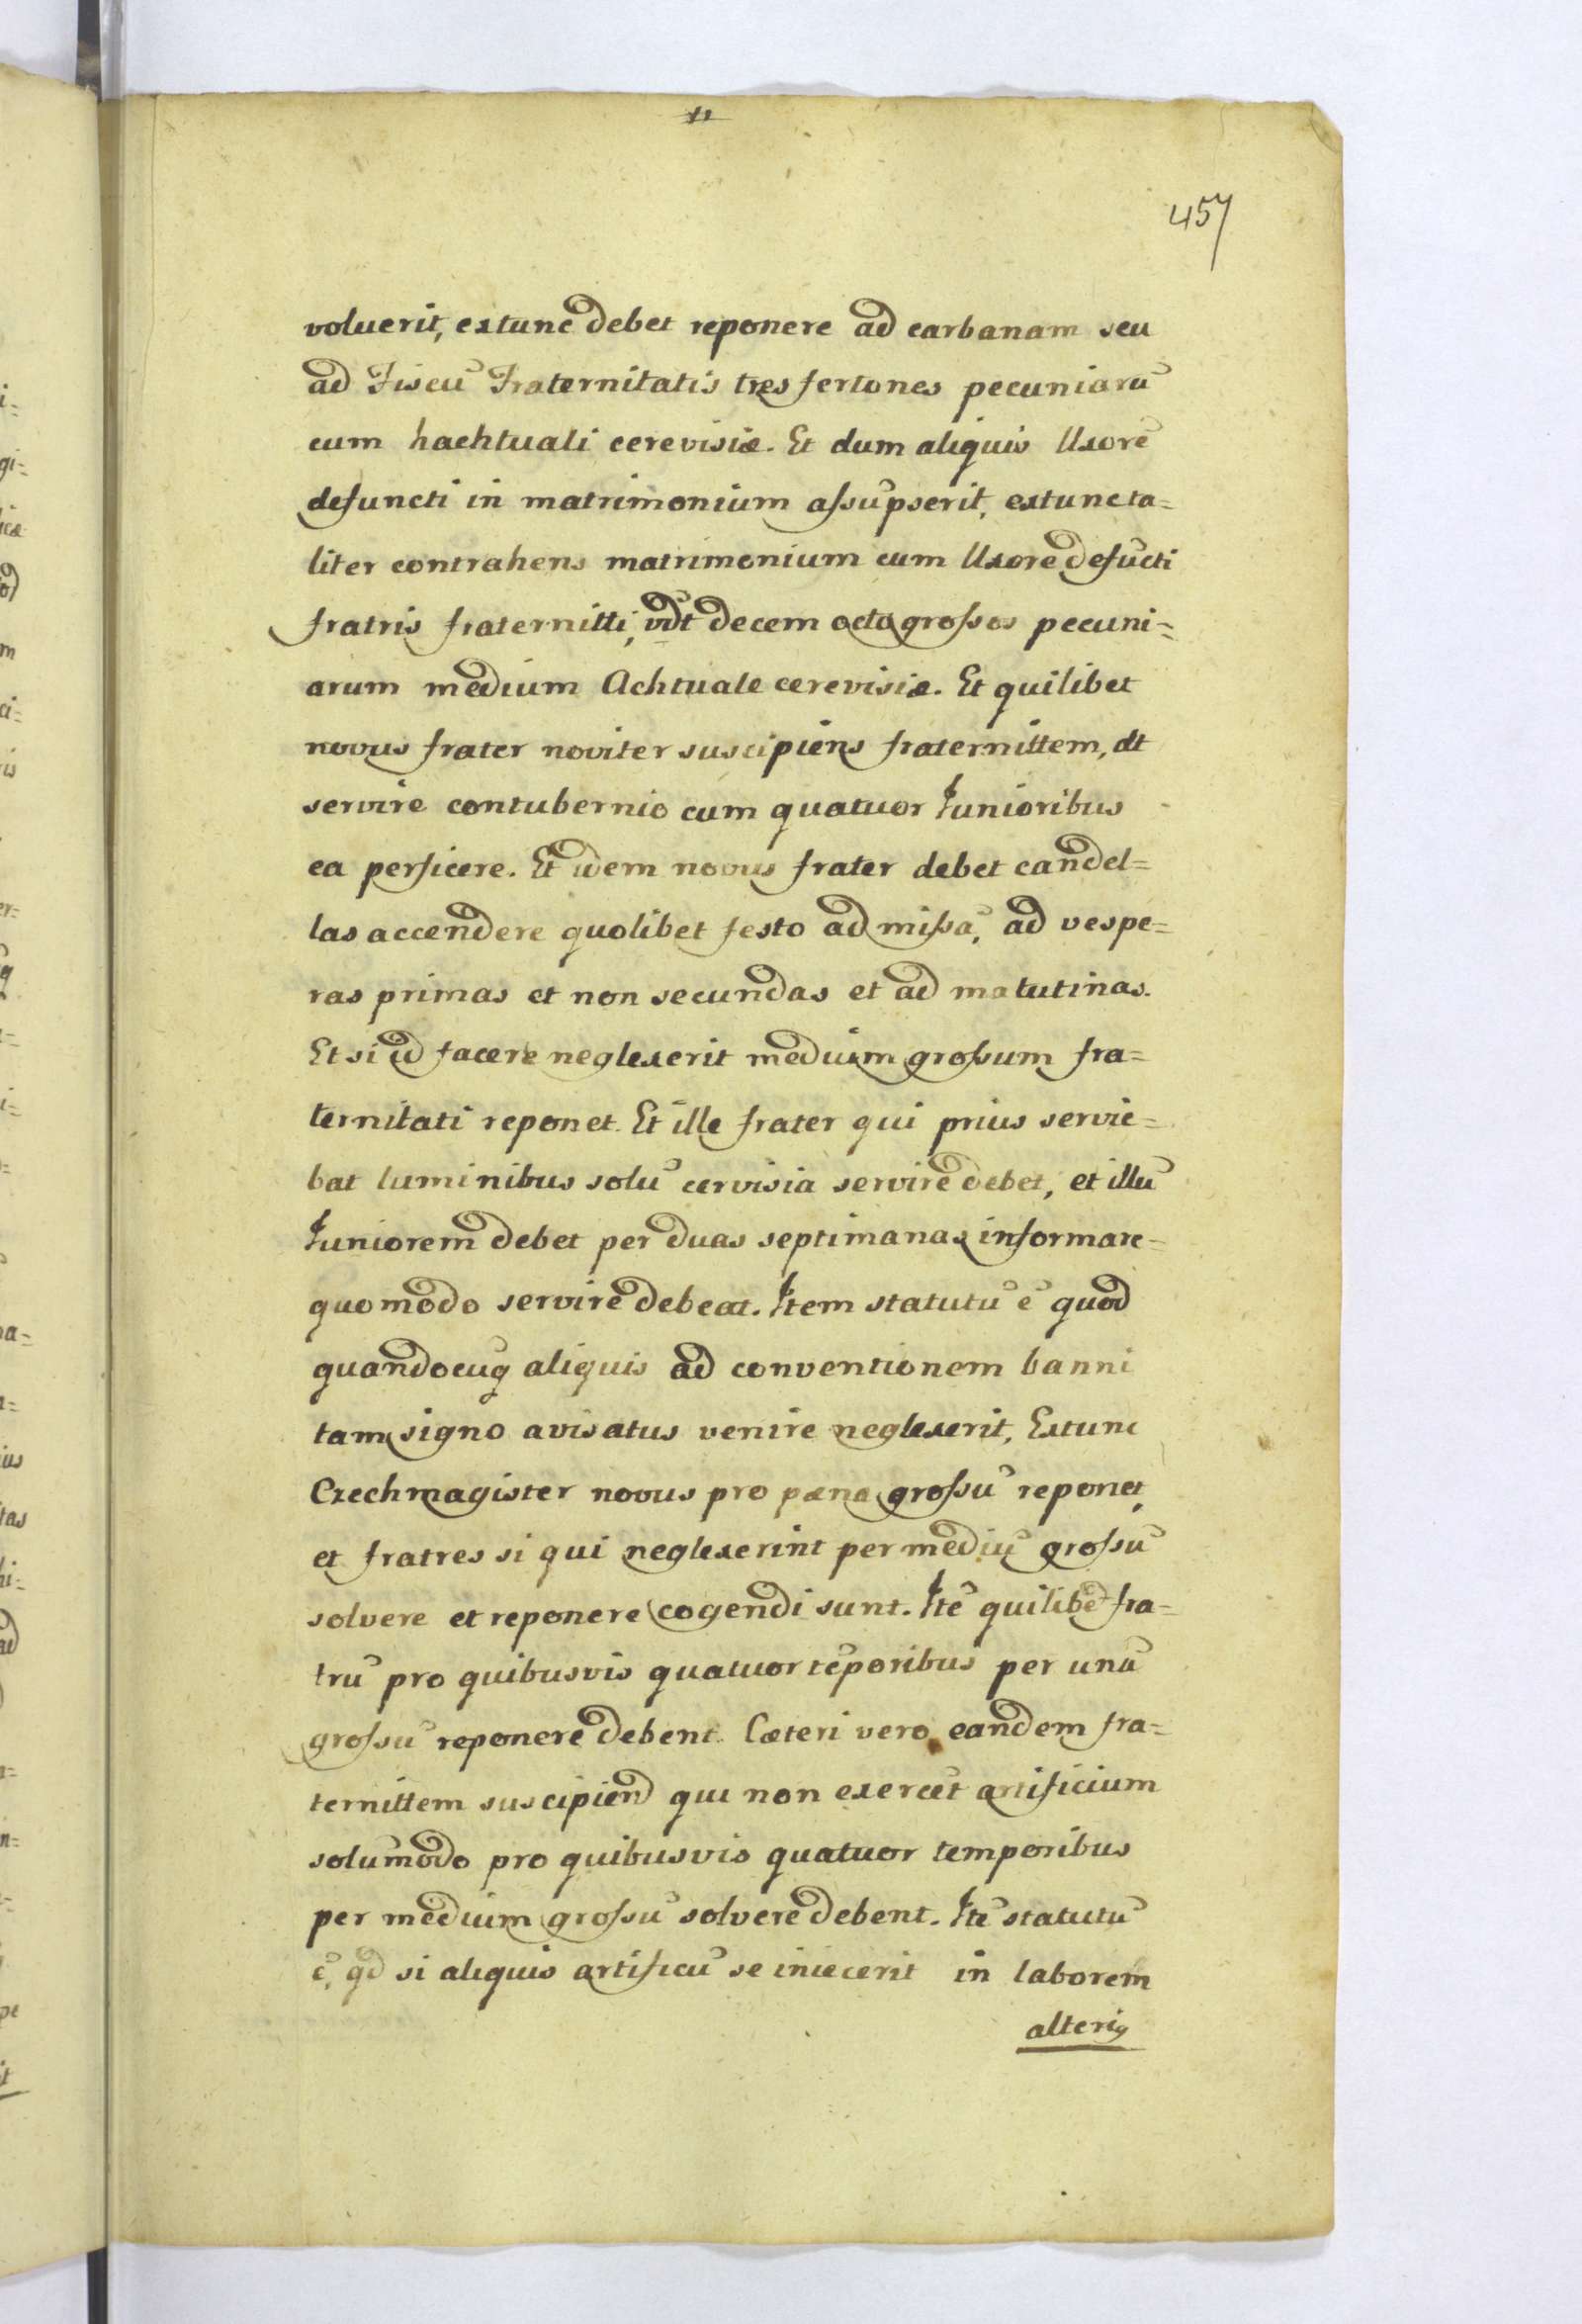 11
457
voluerit, extunc debet reponere ad carbanam seu
ad Fiscũ Fraternitatis tres fertones pecuniarũ
cum hachtuali cerevisiæ. Et dum aliquis Uxorẽ
defuncti in matrimonium assũpserit, extunc ta=
liter contrahens matrimonium cum Uxore defũcti
fratris fraternitti, vdt decem octo grossos pecuni=
arum medium Achtuale cerevisiæ. Et quilibet
novus frater noviter suscipiens fraternittem, dt
servire contubernio cum quatuor Junioribus
ea perficere. Et idem novus frater debet candel=
las accendere quolibet festo ad missã, ad vespe=
ras primas et non secundas et ad matutinas.
Et si id facere neglexerit medium grossum fra=
ternitati reponet. Et ille frater qui prius servie=
bat luminibus solũ cervisia servire debet, et illũ
Juniorem debet per duas septimanas informare
quomodo servire debeat. Item statutũ ẽ quod
quandocuq aliquis ad conventionem banni
tam signo avisatus venire neglexerit, Extunc
Czechmagister novus pro pæna grossũ reponet,
et fratres si qui neglexerint per mediũ grossũ
solvere et reponere cogendi sunt. Itẽ quilibet fra=
trũ pro quibusvis quatuor tẽporibus per unũ
grossũ reponere debent. Cæteri vero eandem fra=
ternittem suscipiend qui non exercẽt artificium
solũmodo pro quibusvis quatuor temporibus
per medium grossũ solvere debent. Itẽ statutũ
ẽ, qd si aliquis artificũ se iniecerit in laborem
alteri9